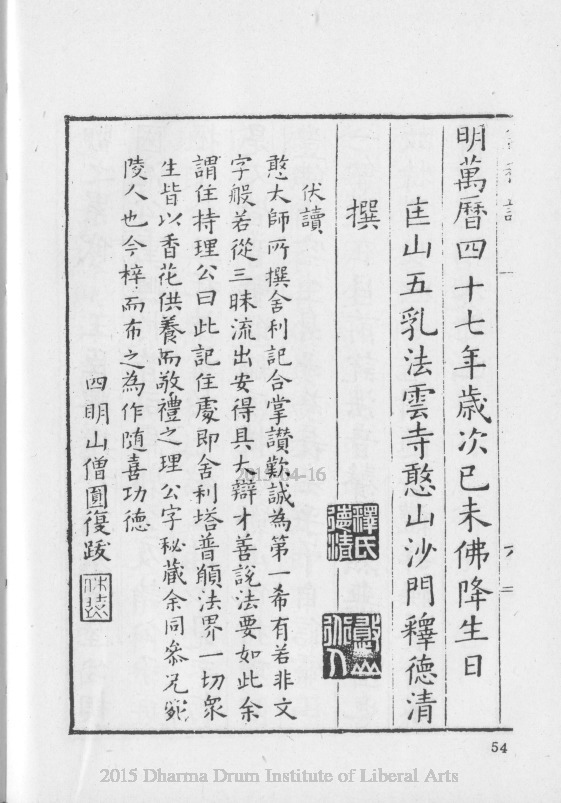 明萬曆四十七年歲次己未佛降生日
匡山五乳法雲寺憨山沙門釋德清
撰
釋氏德清
伏讀
憨大師所撰舍利記合掌讚歎誠為第一希有若非文
字般若從三昧流出安得具大辯才善說法要如此余
謂住持理公曰此記住處即舍利塔普願法界一切衆
生皆以香花供養而敬禮之理公字秘藏余同參兄
陵人也今梓而布之為作隨喜功德
四明山僧圓復跋
54
2015-04-16
2015 Dharma Drum Institute of Liberal Arts